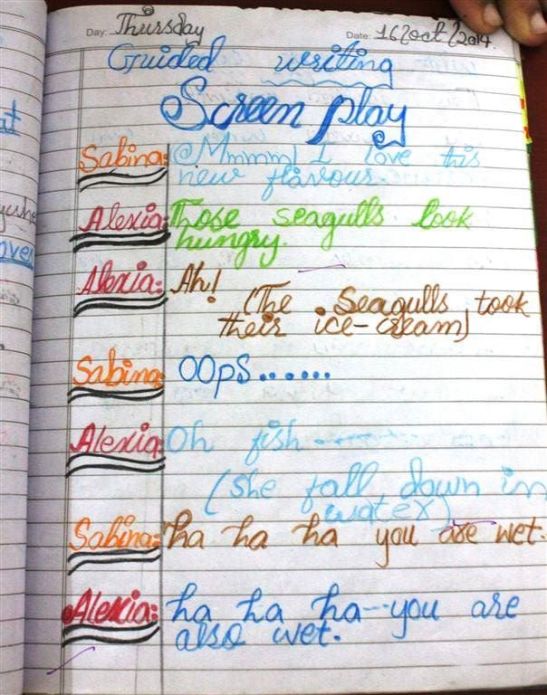 Day: Thursday Date: 16/oct/2014.
Guided writing
Screen play
Sabina: Mmmm I love this
new flavour.
Alexia: Those seagulls look
hungry.
Alexia: Ah!
(The seagulls took
their ice-cream)
Sabina: OOps......
Alexia: Oh fish
(she fall down in
water)
Sabina: ha ha ha you are wet.
Alexia: ha ha ha---you are
also wet.